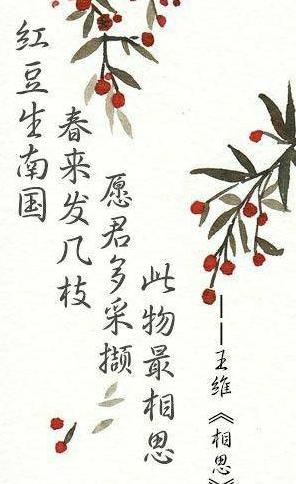 红豆生南国
春来发几枝
愿君多采撷
此物最相思
——王维《相思》